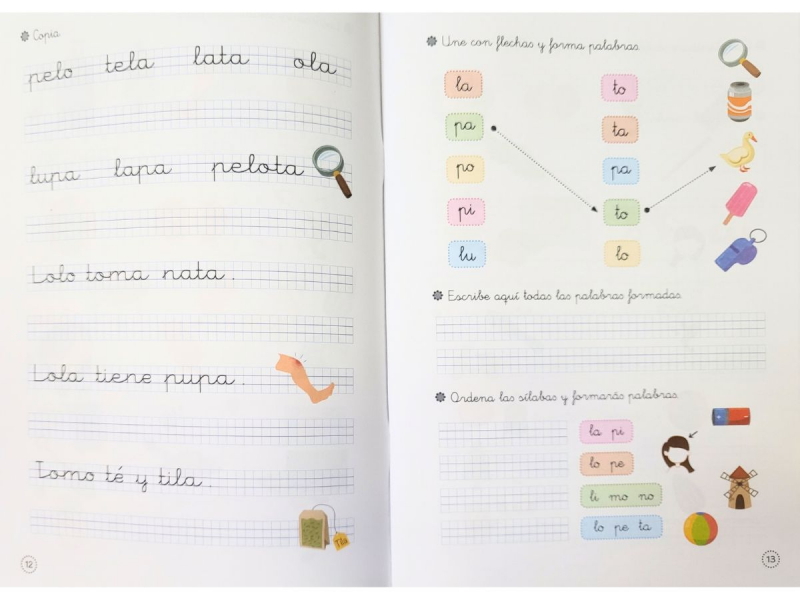 Copia
pelo tela lata ola
lupa lapa pelota
Lolo toma nata.
Lola tiene pupa.
Tomo té y tila.
Tila
12
Une con flechas y forma palabras.
la to
pa ta
po pa
pi to
lu lo
Escribe aquí todas las palabras formadas.
Ordena las sílabas y formarás palabras.
la pi
lo pe
li mo no
lo pe ta
13